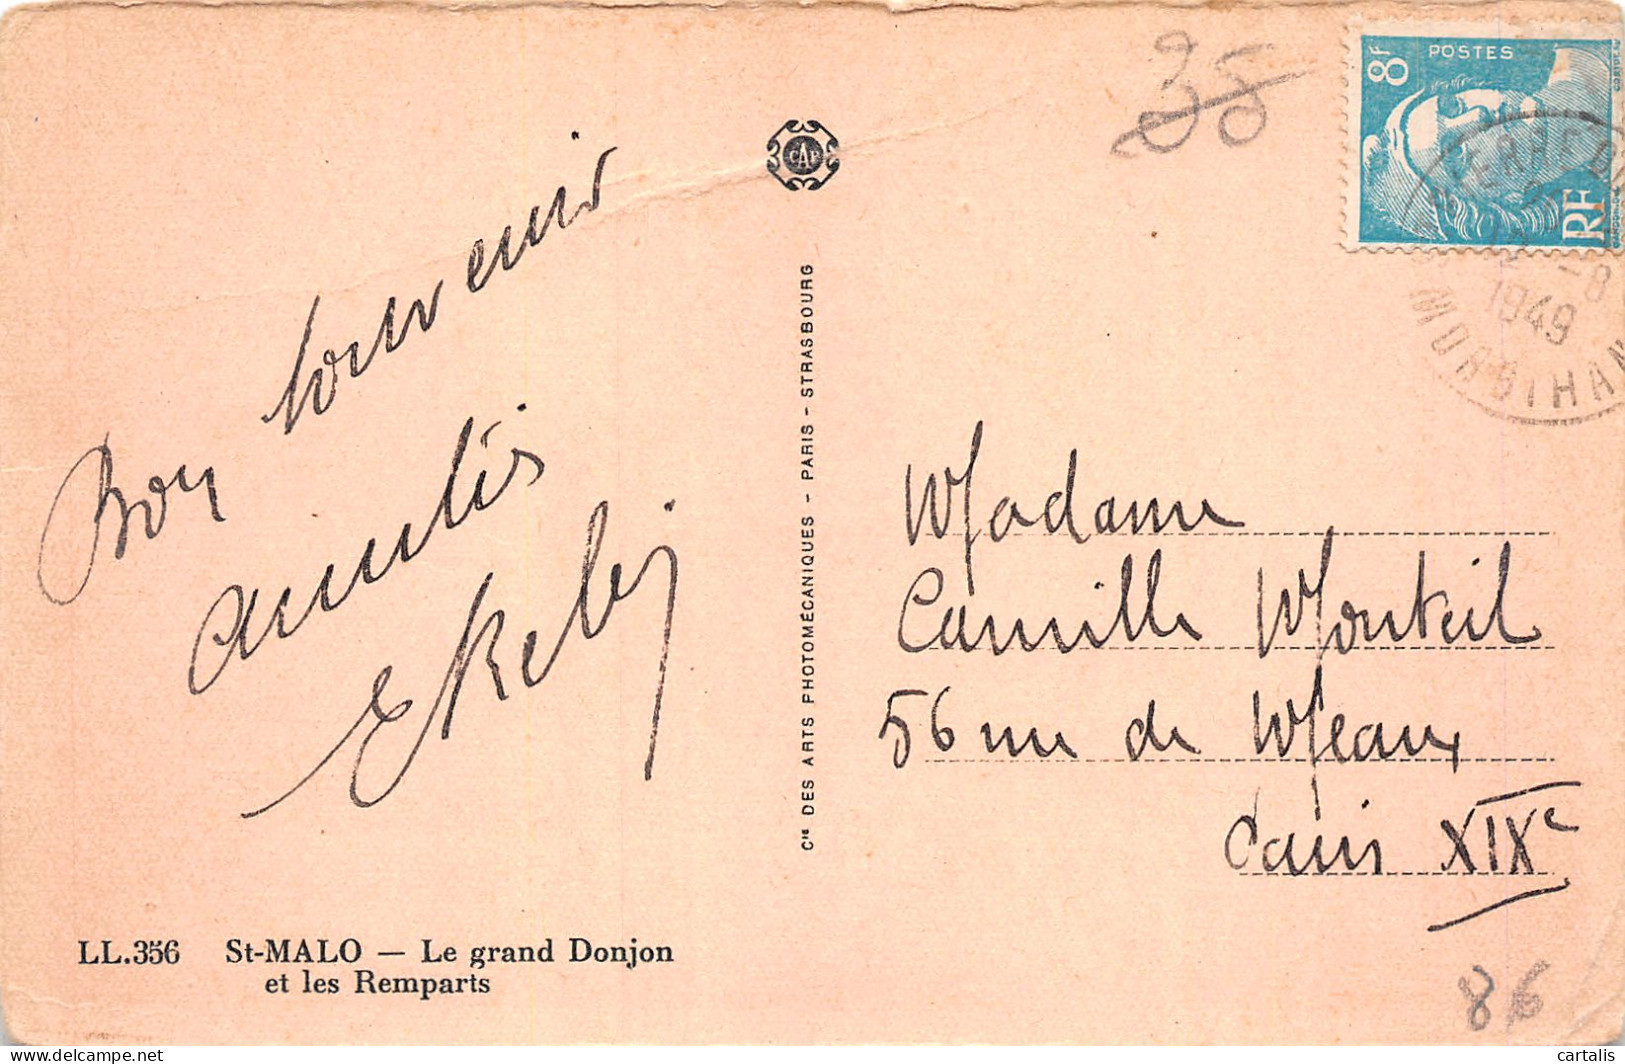 Bon souvenir
amitiés
38
CAP
8F
POSTES
RF
-8
1949
MORBIHAN
Cie DES ARTS PHOTOMÉCANIQUES - PARIS - STRASBOURG
Madame
Camille Monteil
56 rue de Meaux
Paris XIXe
LL.356 St-MALO — Le grand Donjon
et les Remparts
86
cartalis